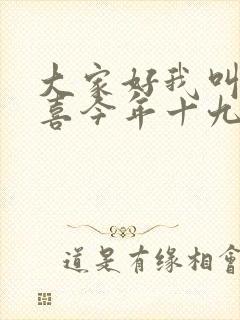 大家好我叫
喜今年十九
道是有缘相會